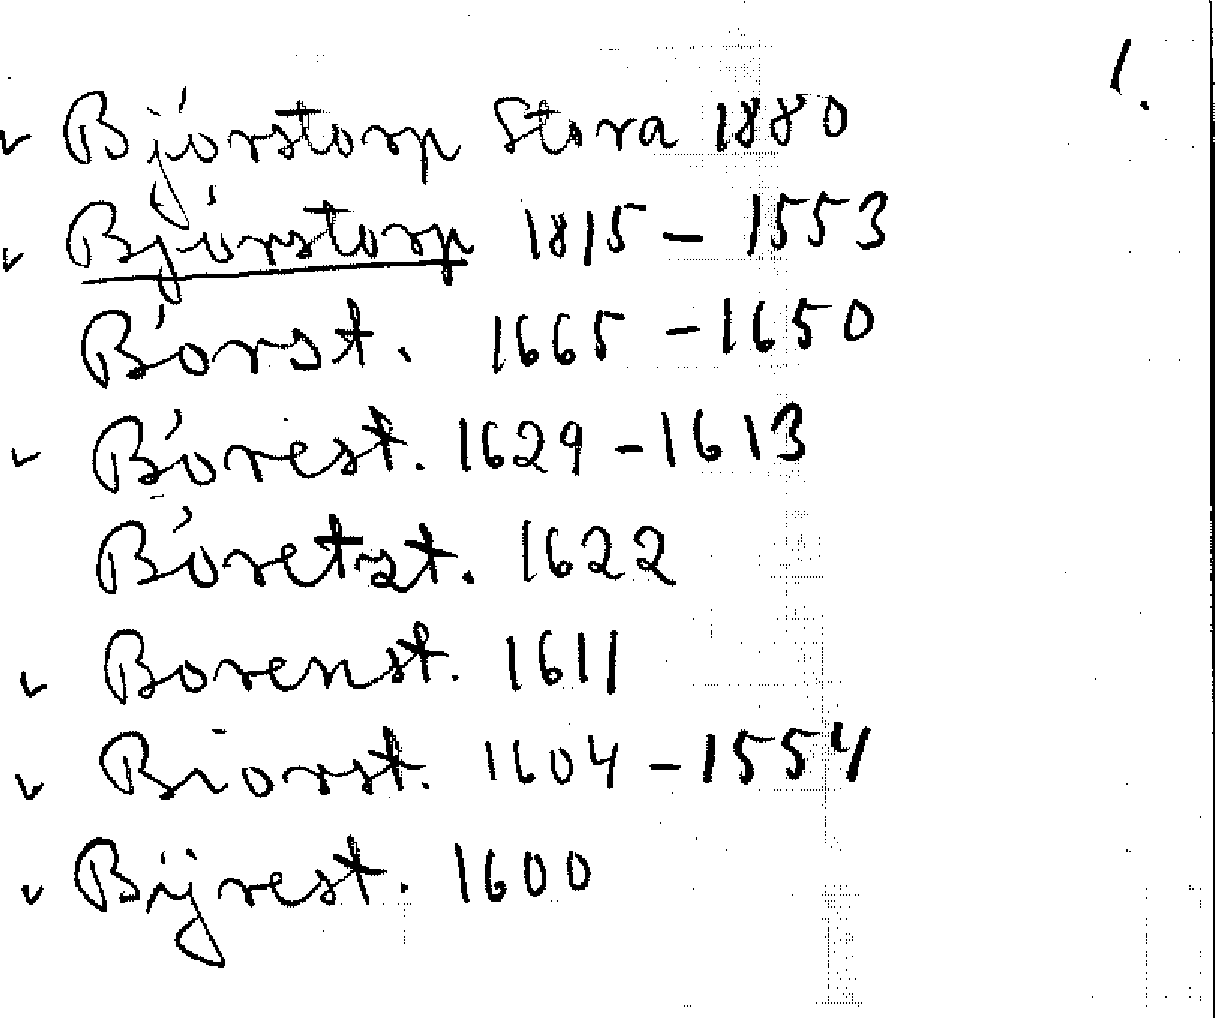 1.
v Björstorp Stora 1880
v Björstorp 1815 - 1553
Börst. 1665 - 1650
v Börest. 1629 - 1613
Böretzt. 1622
v Borenst. 1611
v Biorst. 1604 - 1554
v Bijrest. 1600